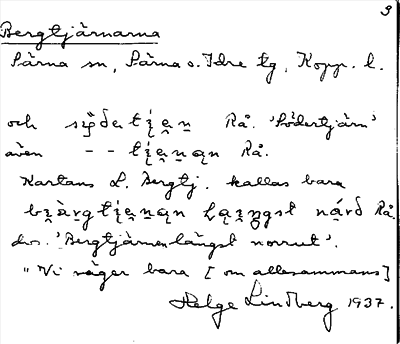 3
Bergtjärnarna
Särna sn, Särna o. Idre tg, Kopp. l.
och Rå. 'Södertjärn'
även - - Rå.
Kartans L. Bergtj. kallas bara
Rå.
dvs. 'Bergtjärnen längst norrut'.
"Vi säger bara [om allesammans]
Helge Lindberg 1937.